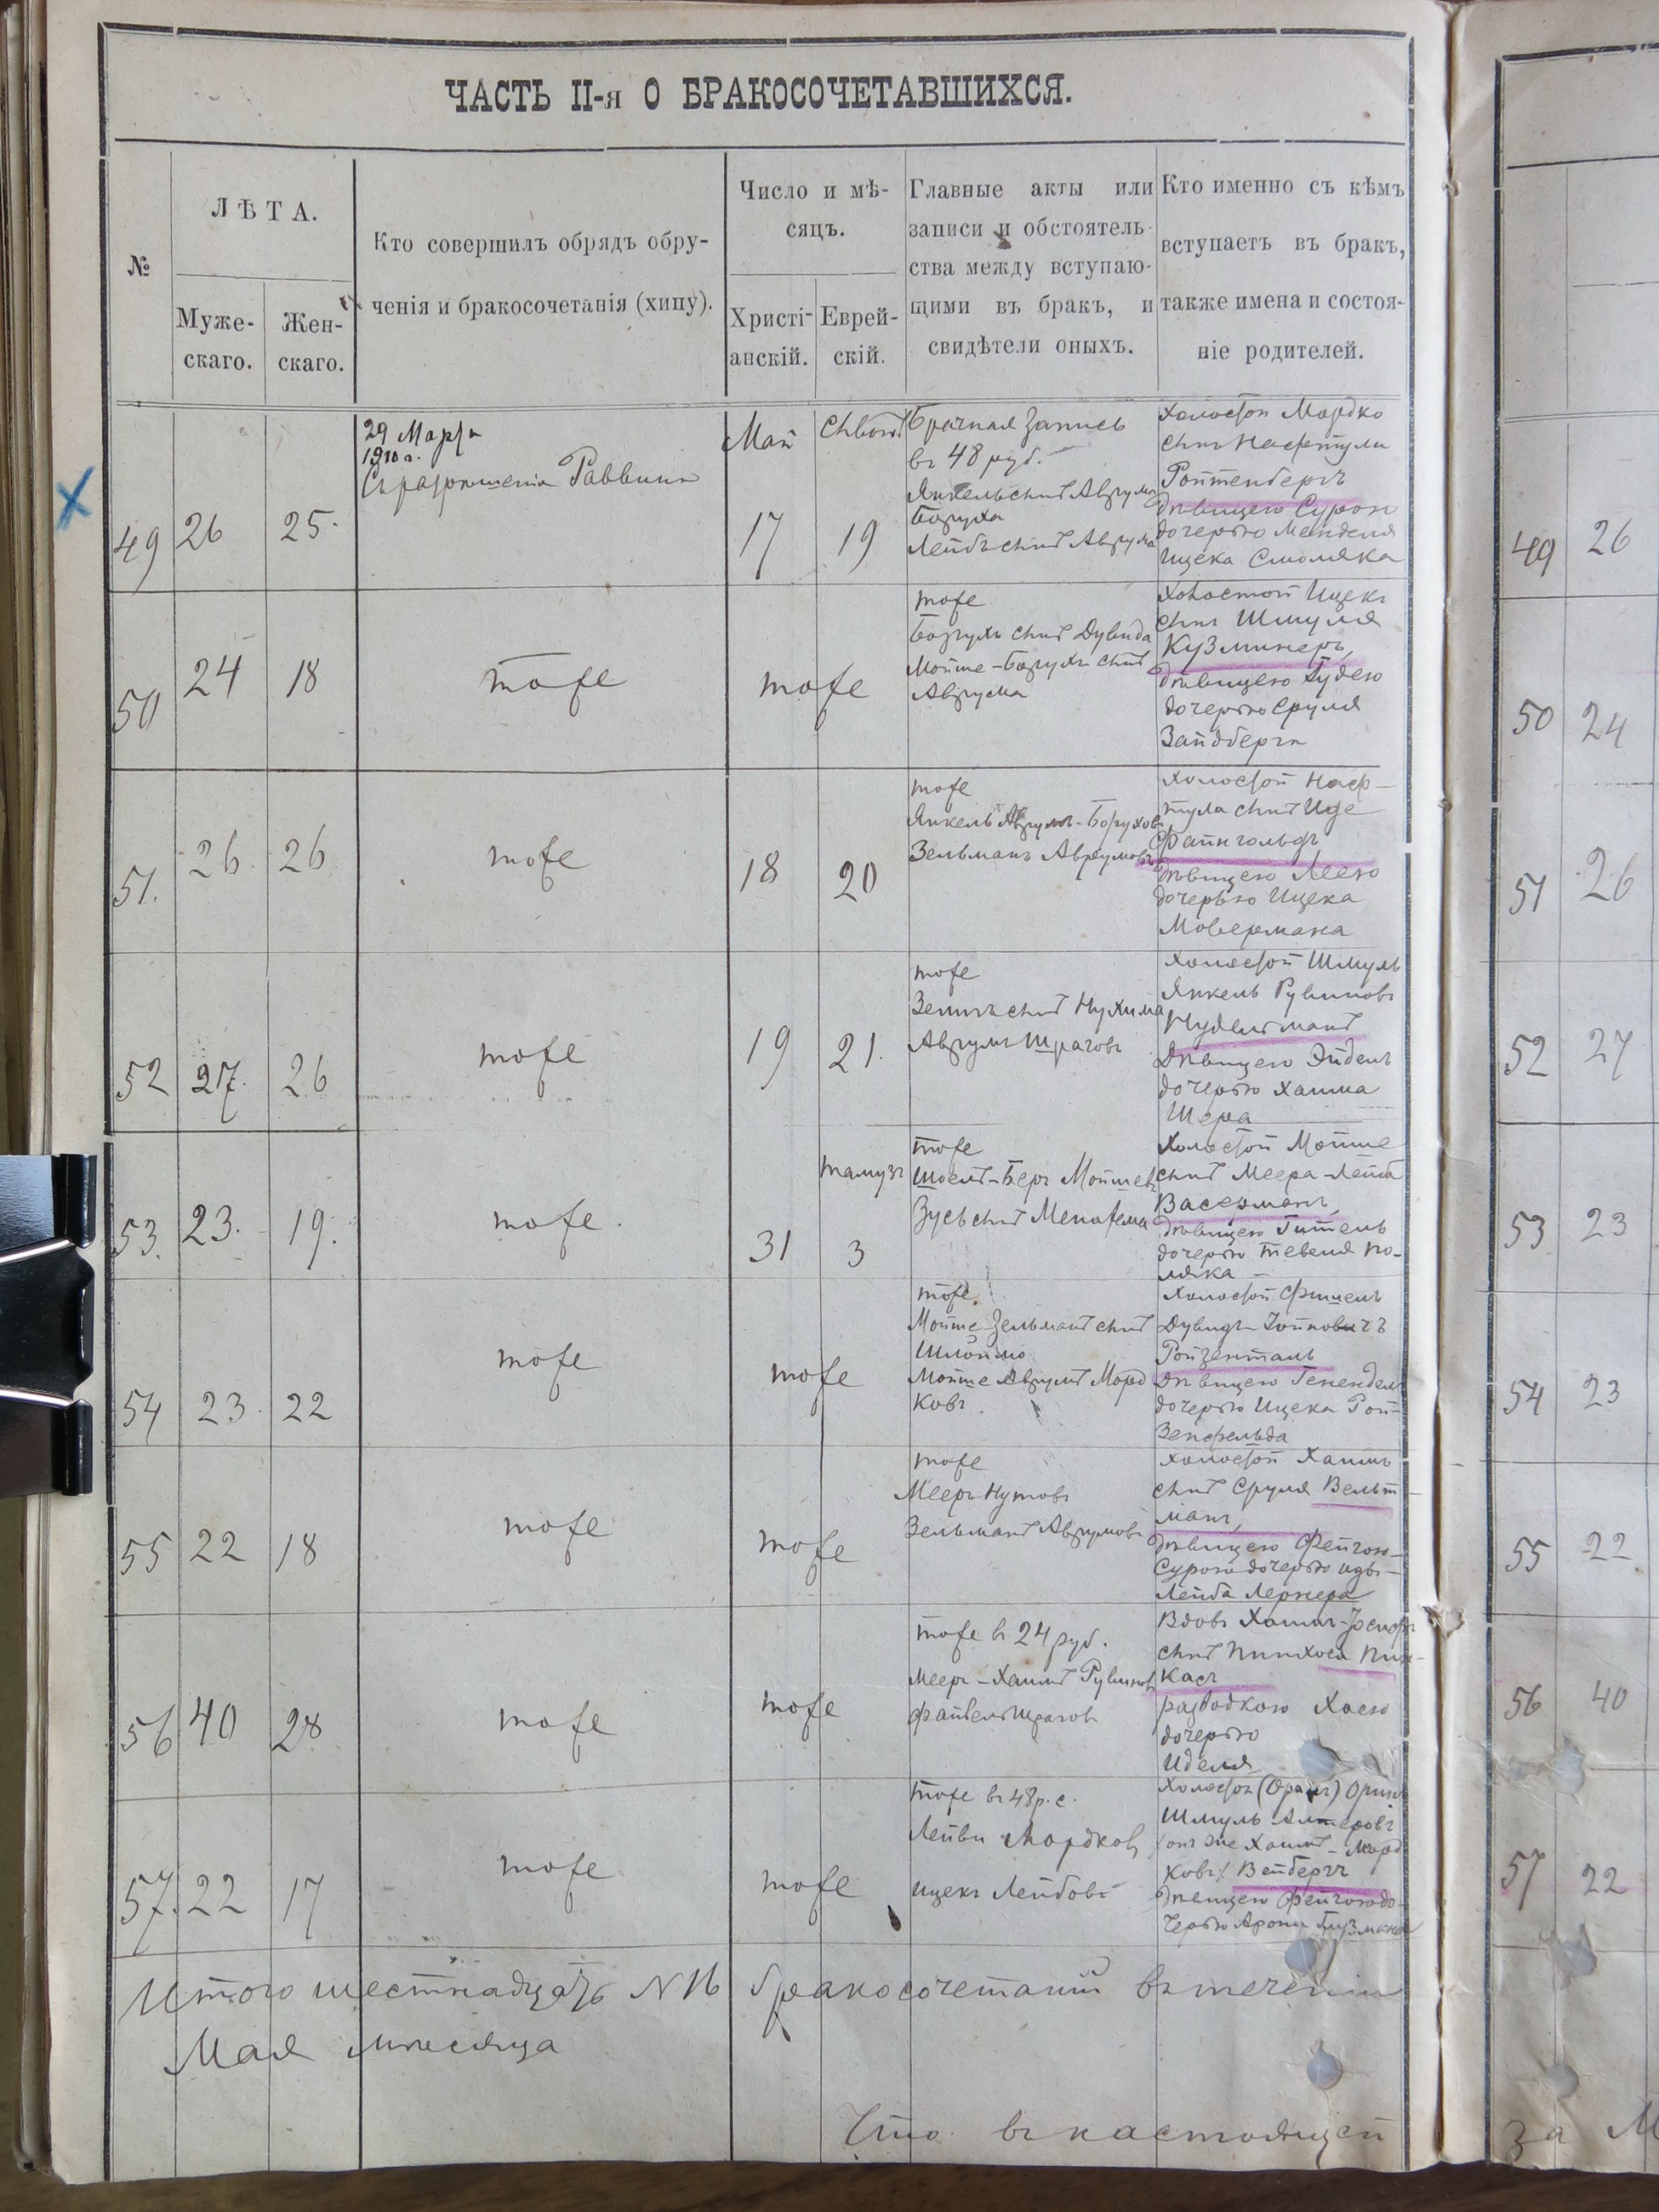 ЧАСТЬ II-я О БРАКОСОЧЕТАВШИХСЯ.
№
ЛѢТА.
Муже-
скаго.
Жен-
скаго.
Кто совершилъ обрядъ обру-
ченія и бракосочетанія (хипу).
Число и мѣ-
сяцъ.
Христі-
анскій.
Еврей-
скій.
Главные акты или
записи и обстоятель-
ства между вступаю-
щими въ бракъ, и
свидѣтели оныхъ.
Кто именно съ кѣмъ
вступаетъ въ бракъ,
также имена и состоя-
ніе родителей.
49
26
25
29 Марта
1910 г.
Съ разрѣшенія Раввина
Май
17
19
Брачная запись
въ 48 руб.
Янкель сынъ Аврума
Боруха
Лейбъ сынъ Аврума
Холостой Мордко
сынъ Нафтули
Ройтенбергъ
дѣвицею Сурою
дочерью Менделя
Ицека Смоляка
50
24
18
тоже
тоже
тоже
Борухъ сынъ Дувида
Мойше-Борухъ сынъ
Аврума
Холостой Ицекъ
сынъ Шмуля
Кузминеръ,
дѣвицею
дочерью Сруля
Зайдберга
51.
26
26
тоже
18
20
тоже
Янкель Аврумъ-Борухов
Зельманъ Аврумовъ
Холостой Наф-
тула сынъ
Файнгольдъ
дѣвицею Леею
дочерью Ицека
Мовермана
52
27.
26
тоже
19
21.
тоже
сынъ Нухима
Аврумъ Шраговъ
Холостой Шмуль
Янкель Рувиновъ
Нудельманъ
Дѣвицею Эйдель
дочерью Хаима
Шера
53.
23.
19.
тоже.
31
тамузъ
3
тоже
-Беръ Мойшевъ
Зусь сынъ
Холостой Мойше
сынъ Меера-Лейба
Васерманъ,
дѣвицею Гитель
дочерью Тевеля По-
ляка
54
23
22
тоже
тоже
тоже.
Мойше-Зельманъ сынъ
Шлоймо
Мойше Аврумъ Морд
ковъ.
Холостой Фишель
Дувидъ
Ройзенталь
дѣвицею Генендель
дочерью Ицека Рой-
зенфельда
55
22
18
тоже
тоже
тоже
Мееръ Нутовъ
Зельманъ Аврумовъ
Холостой Хаимъ
сынъ Сруля Вельт-
манъ,
дѣвицею Фейгою-
Сурою дочерью
Лейба Лернера
56
40
28
тоже
тоже
тоже въ 24 руб.
Мееръ-Хаимъ Рувиновъ
Файвель Шраговъ
Вдовъ Хаимъ-Іосифъ
сынъ Пинхоса Пин-
касъ
разводкою Хаею
дочерью
Иделя
57.
22
17
тоже
тоже
тоже въ 48 р. с.
Лейви Мордковъ
Ицекъ Лейбовъ
Холостой
Шмуль Алтеровъ
онъ же Хаимъ-Морд
ковъ/ Вейбергъ
дѣвицею Фейгою до-
черью Арона Глузмана
Итого шестнадцать N 16 бракосочетаній въ теченіи
Мая мѣсяца
Что въ настоящей
49 26
50 24
51 26
52 27
53 23
54 23
55 22
56 40
57 22
за М